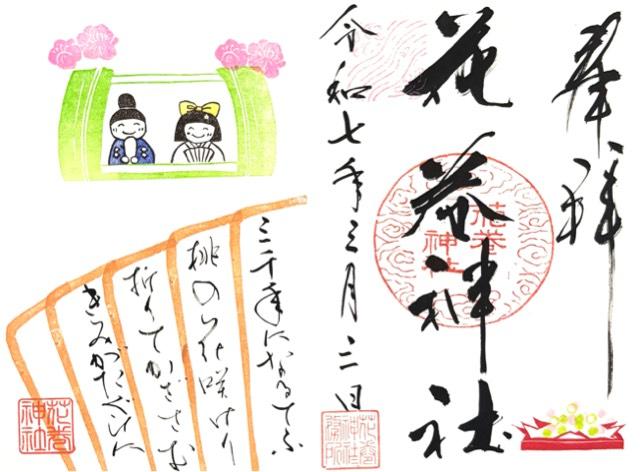 奉拝
花巻神社
令和七年三月二日
三千年になるてふ
桃の花咲けり
折りてかざさむ
きみがたぐひに
花巻神社
花巻神社